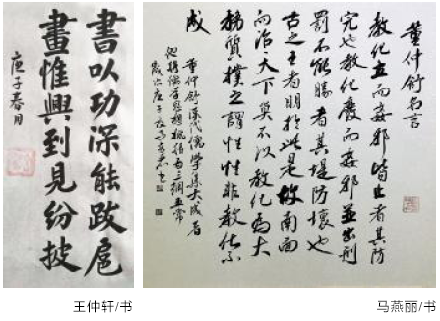 書以功深能跋扈
畫惟興到見紛披
庚子春月
王仲轩/书
董仲舒名言
教化立而姦邪皆止者其防
完也教化廢而姦邪並出刑
罰不能勝者其堤防壞也
古之王者明於此是故南面
而治天下莫不以教化為大
務質樸之謂性性非教化不
成
董仲舒漢代儒學集大成者
他將儒學思想概括為三綱五常
歲次庚子
马燕丽/书